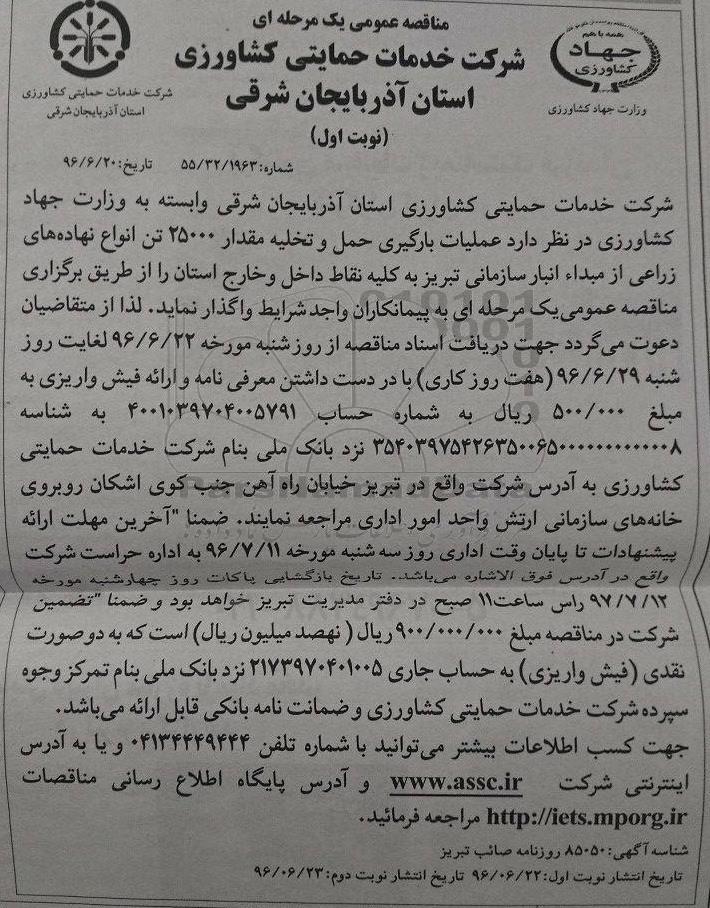 مناقصه عمومی یک مرحله ای
شرکت خدمات حمایتی کشاورزی
استان آذربایجان شرقی
(نوبت اول)
همه با هم
جهاد
کشاورزی
وزارت جهاد کشاورزی
شرکت خدمات حمایتی کشاورزی
استان آذربایجان شرقی
شماره: ۵۵/۳۲/۱۹۶۳ تاریخ: ۹۶/۶/۲۰
شرکت خدمات حمایتی کشاورزی استان آذربایجان شرقی وابسته به وزارت جهاد
کشاورزی در نظر دارد عملیات بارگیری حمل و تخلیه مقدار ۲۵۰۰۰ تن انواع نهاده‌های
زراعی از مبداء انبار سازمانی تبریز به کلیه نقاط داخل وخارج استان را از طریق برگزاری
مناقصه عمومی یک مرحله ای به پیمانکاران واجد شرایط واگذار نماید. لذا از متقاضیان
دعوت می‌گردد جهت دریافت اسناد مناقصه از روز شنبه مورخه ۹۶/۶/۲۲ لغایت روز
شنبه ۹۶/۶/۲۹ (هفت روز کاری) با در دست داشتن معرفی نامه و ارائه فیش واریزی به
مبلغ ۵۰۰/۰۰۰ ریال به شماره حساب ۴۰۰۱۰۳۹۷۰۴۰۰۵۷۹۱ به شناسه
۳۵۴۰۳۹۷۵۴۲۶۳۵۰۰۶۵۰۰۰۰۰۰۰۰۰۰۰۰۸ نزد بانک ملی بنام شرکت خدمات حمایتی
کشاورزی به آدرس شرکت واقع در تبریز خیابان راه آهن جنب کوی اشکان روبروی
خانه‌های سازمانی ارتش واحد امور اداری مراجعه نمایند. ضمنا "آخرین مهلت ارائه
پیشنهادات تا پایان وقت اداری روز سه شنبه مورخه ۹۶/۷/۱۱ به اداره حراست شرکت
واقع در آدرس فوق الاشاره می‌باشد. تاریخ بازگشایی پاکات روز چهارشنبه مورخه
۹۷/۷/۱۲ راس ساعت۱۱ صبح در دفتر مدیریت تبریز خواهد بود و ضمنا "تضمین
شرکت در مناقصه مبلغ ۹۰۰/۰۰۰/۰۰۰ریال ( نهصد میلیون ریال) است که به دو صورت
نقدی (فیش واریزی) به حساب جاری ۲۱۷۳۹۷۰۴۰۱۰۰۵ نزد بانک ملی بنام تمرکز وجوه
سپرده شرکت خدمات حمایتی کشاورزی و ضمانت نامه بانکی قابل ارائه می‌باشد.
جهت کسب اطلاعات بیشتر می‌توانید با شماره تلفن ۰۴۱۳۴۴۴۹۴۴۴ و یا به آدرس
اینترنتی شرکت www.assc.ir و آدرس پایگاه اطلاع رسانی مناقصات
http://iets.mporg.ir مراجعه فرمائید.
شناسه آگهی: ۸۵۰۵۰ روزنامه صائب تبریز
تاریخ انتشار نوبت اول: ۹۶/۰۶/۲۲ تاریخ انتشار نوبت دوم: ۹۶/۰۶/۲۳